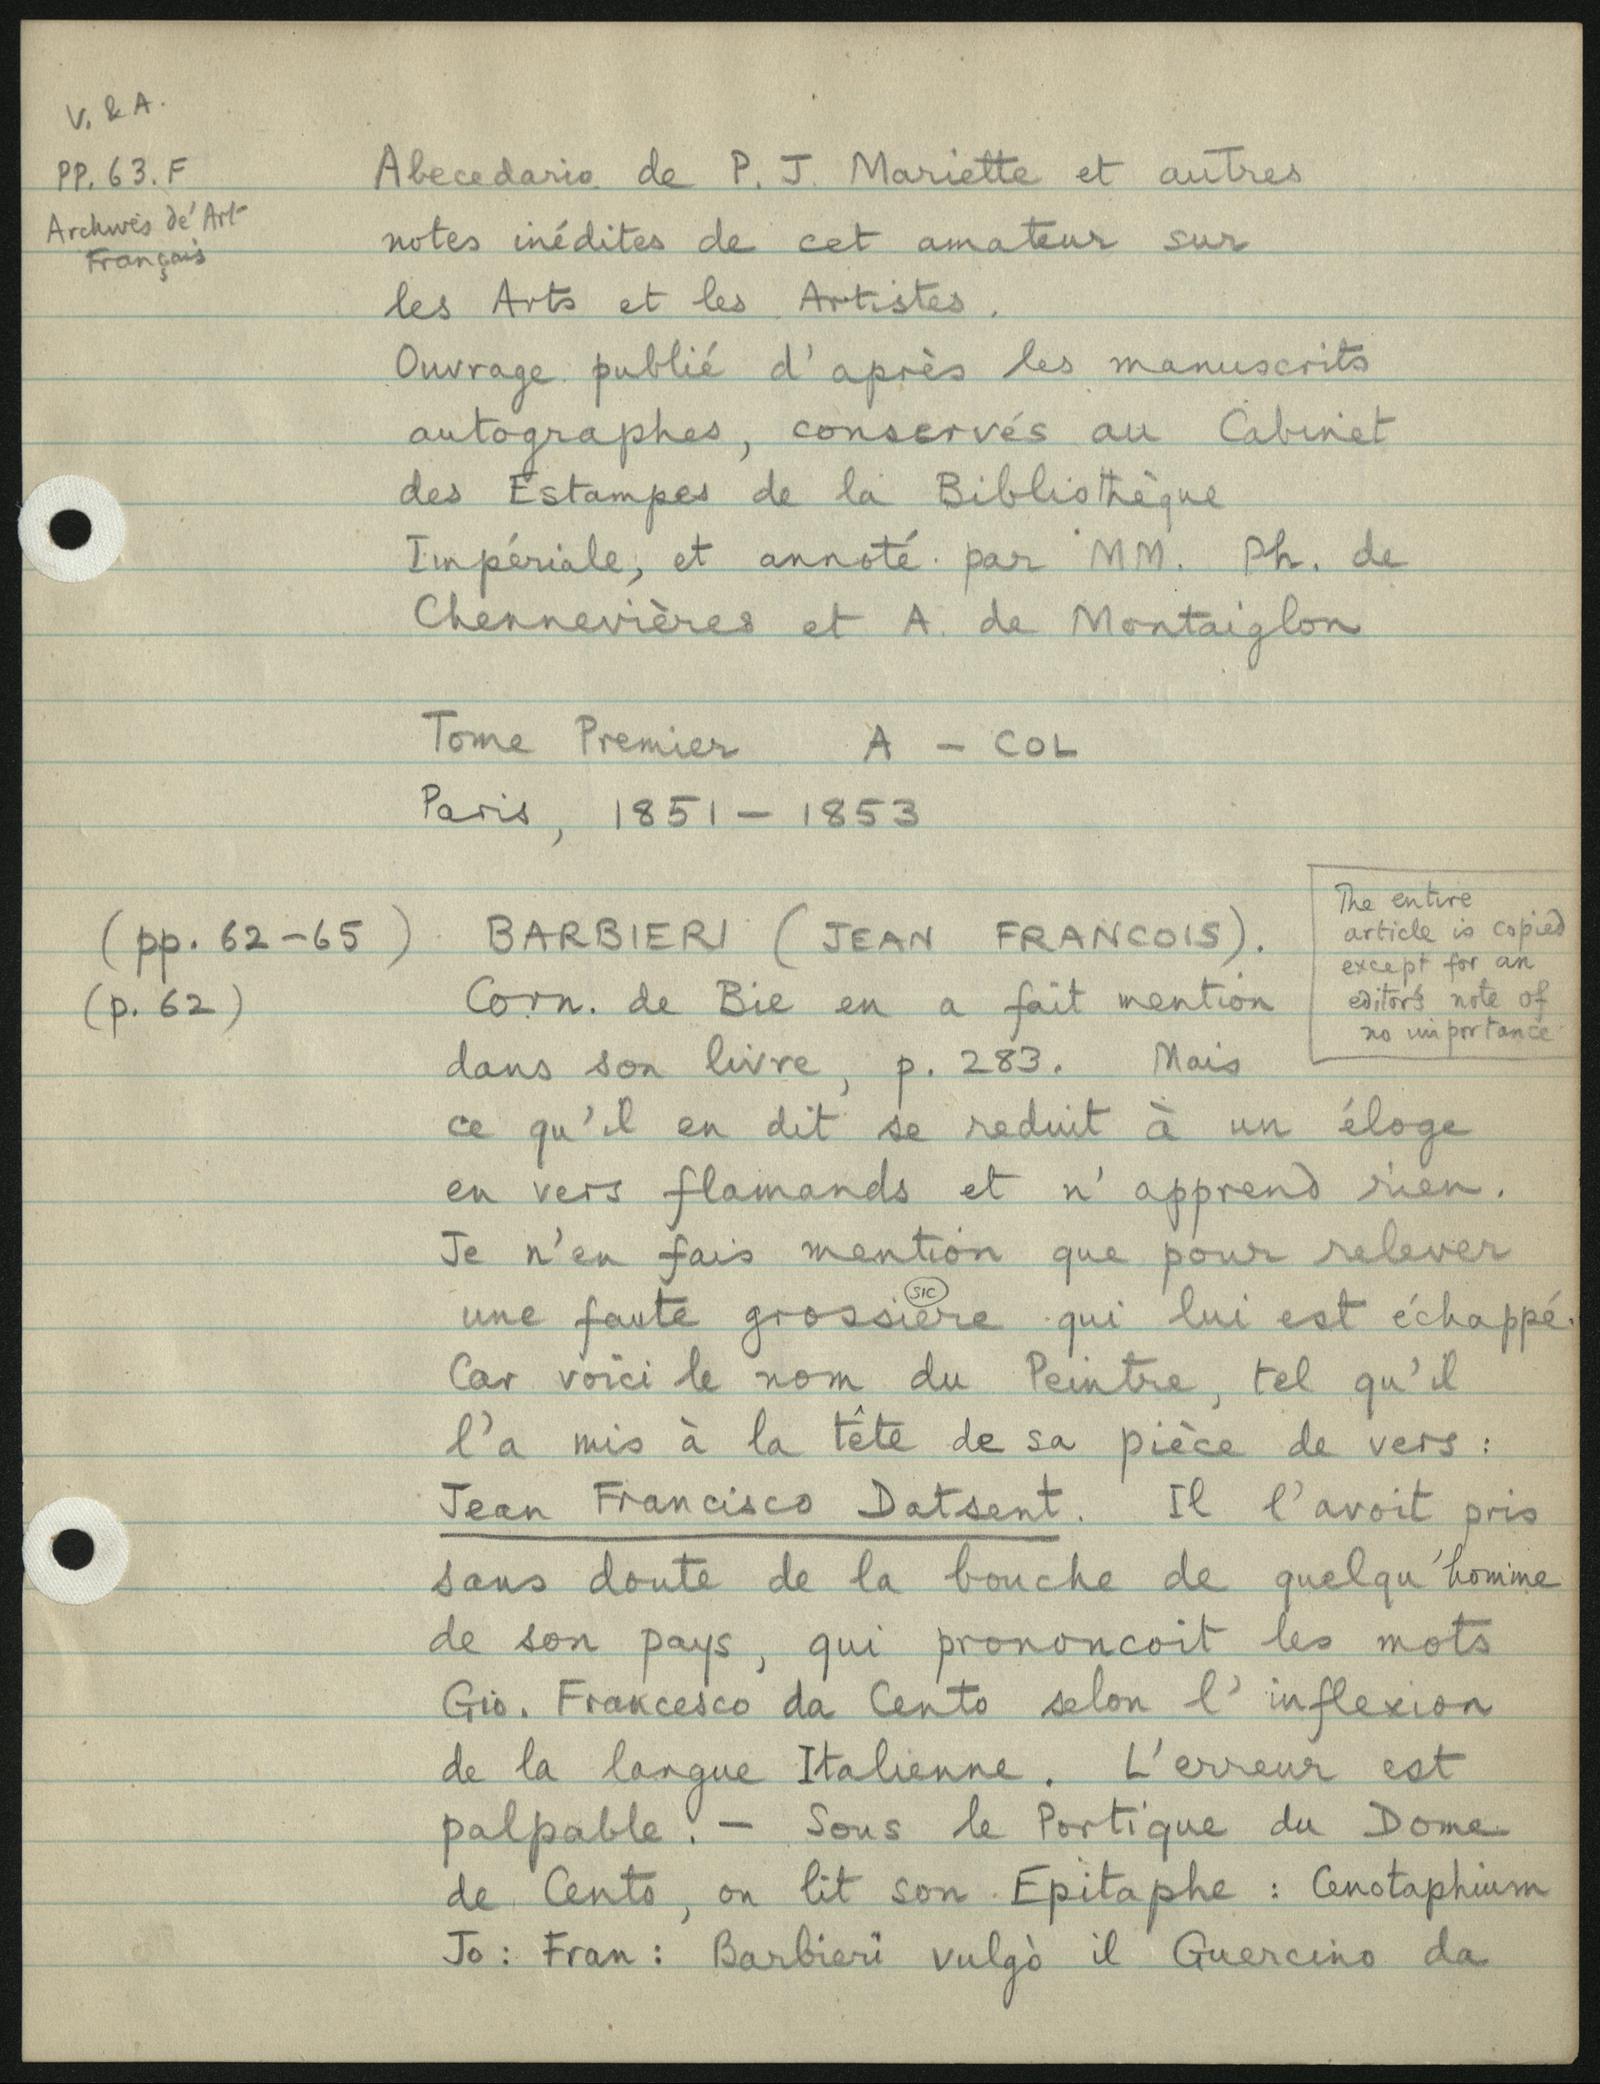 V. & A.
PP. 63. F
Archives de' Art
Français
Abecedario de P. J. Mariette et autres
notes inédites de cet amateur sur
les Arts et les Artistes.
Ouvrage publié d'après les manuscrits
autographes, conservés au Cabinet
des Estampes de la Bibliothèque
Impériale, et annoté par MM. Ph. de
Chennevières et A. de Montaiglon
Tome Premier A - COL
Paris, 1851 - 1853
(pp. 62-65) BARBIERI (JEAN FRANCOIS).
The entire
article is copied
except for an
editor's note of
no importance
(p. 62) Corn. de Bie en a fait mention
dans son livre, p. 283. Mais
ce qu'il en dit se reduit à un éloge
en vers flamands et n'apprend rien.
Je n'en fais mention que pour relever
SIC
une faute grossière qui lui est échappé.
Car voici le nom du Peintre, tel qu'il
l'a mis à la tête de sa pièce de vers :
Jean Francisco Datsent. Il l'avoit pris
sans doute de la bouche de quelqu'homme
de son pays, qui prononcoit les mots
Gio. Francesco da Cento selon l'inflexion
de la langue Italienne. L'erreur est
palpable. - Sous le Portique du Dome
de Cento, on lit son Epitaphe : Cenotaphium
Jo : Fran : Barbieri vulgò il Guercino da